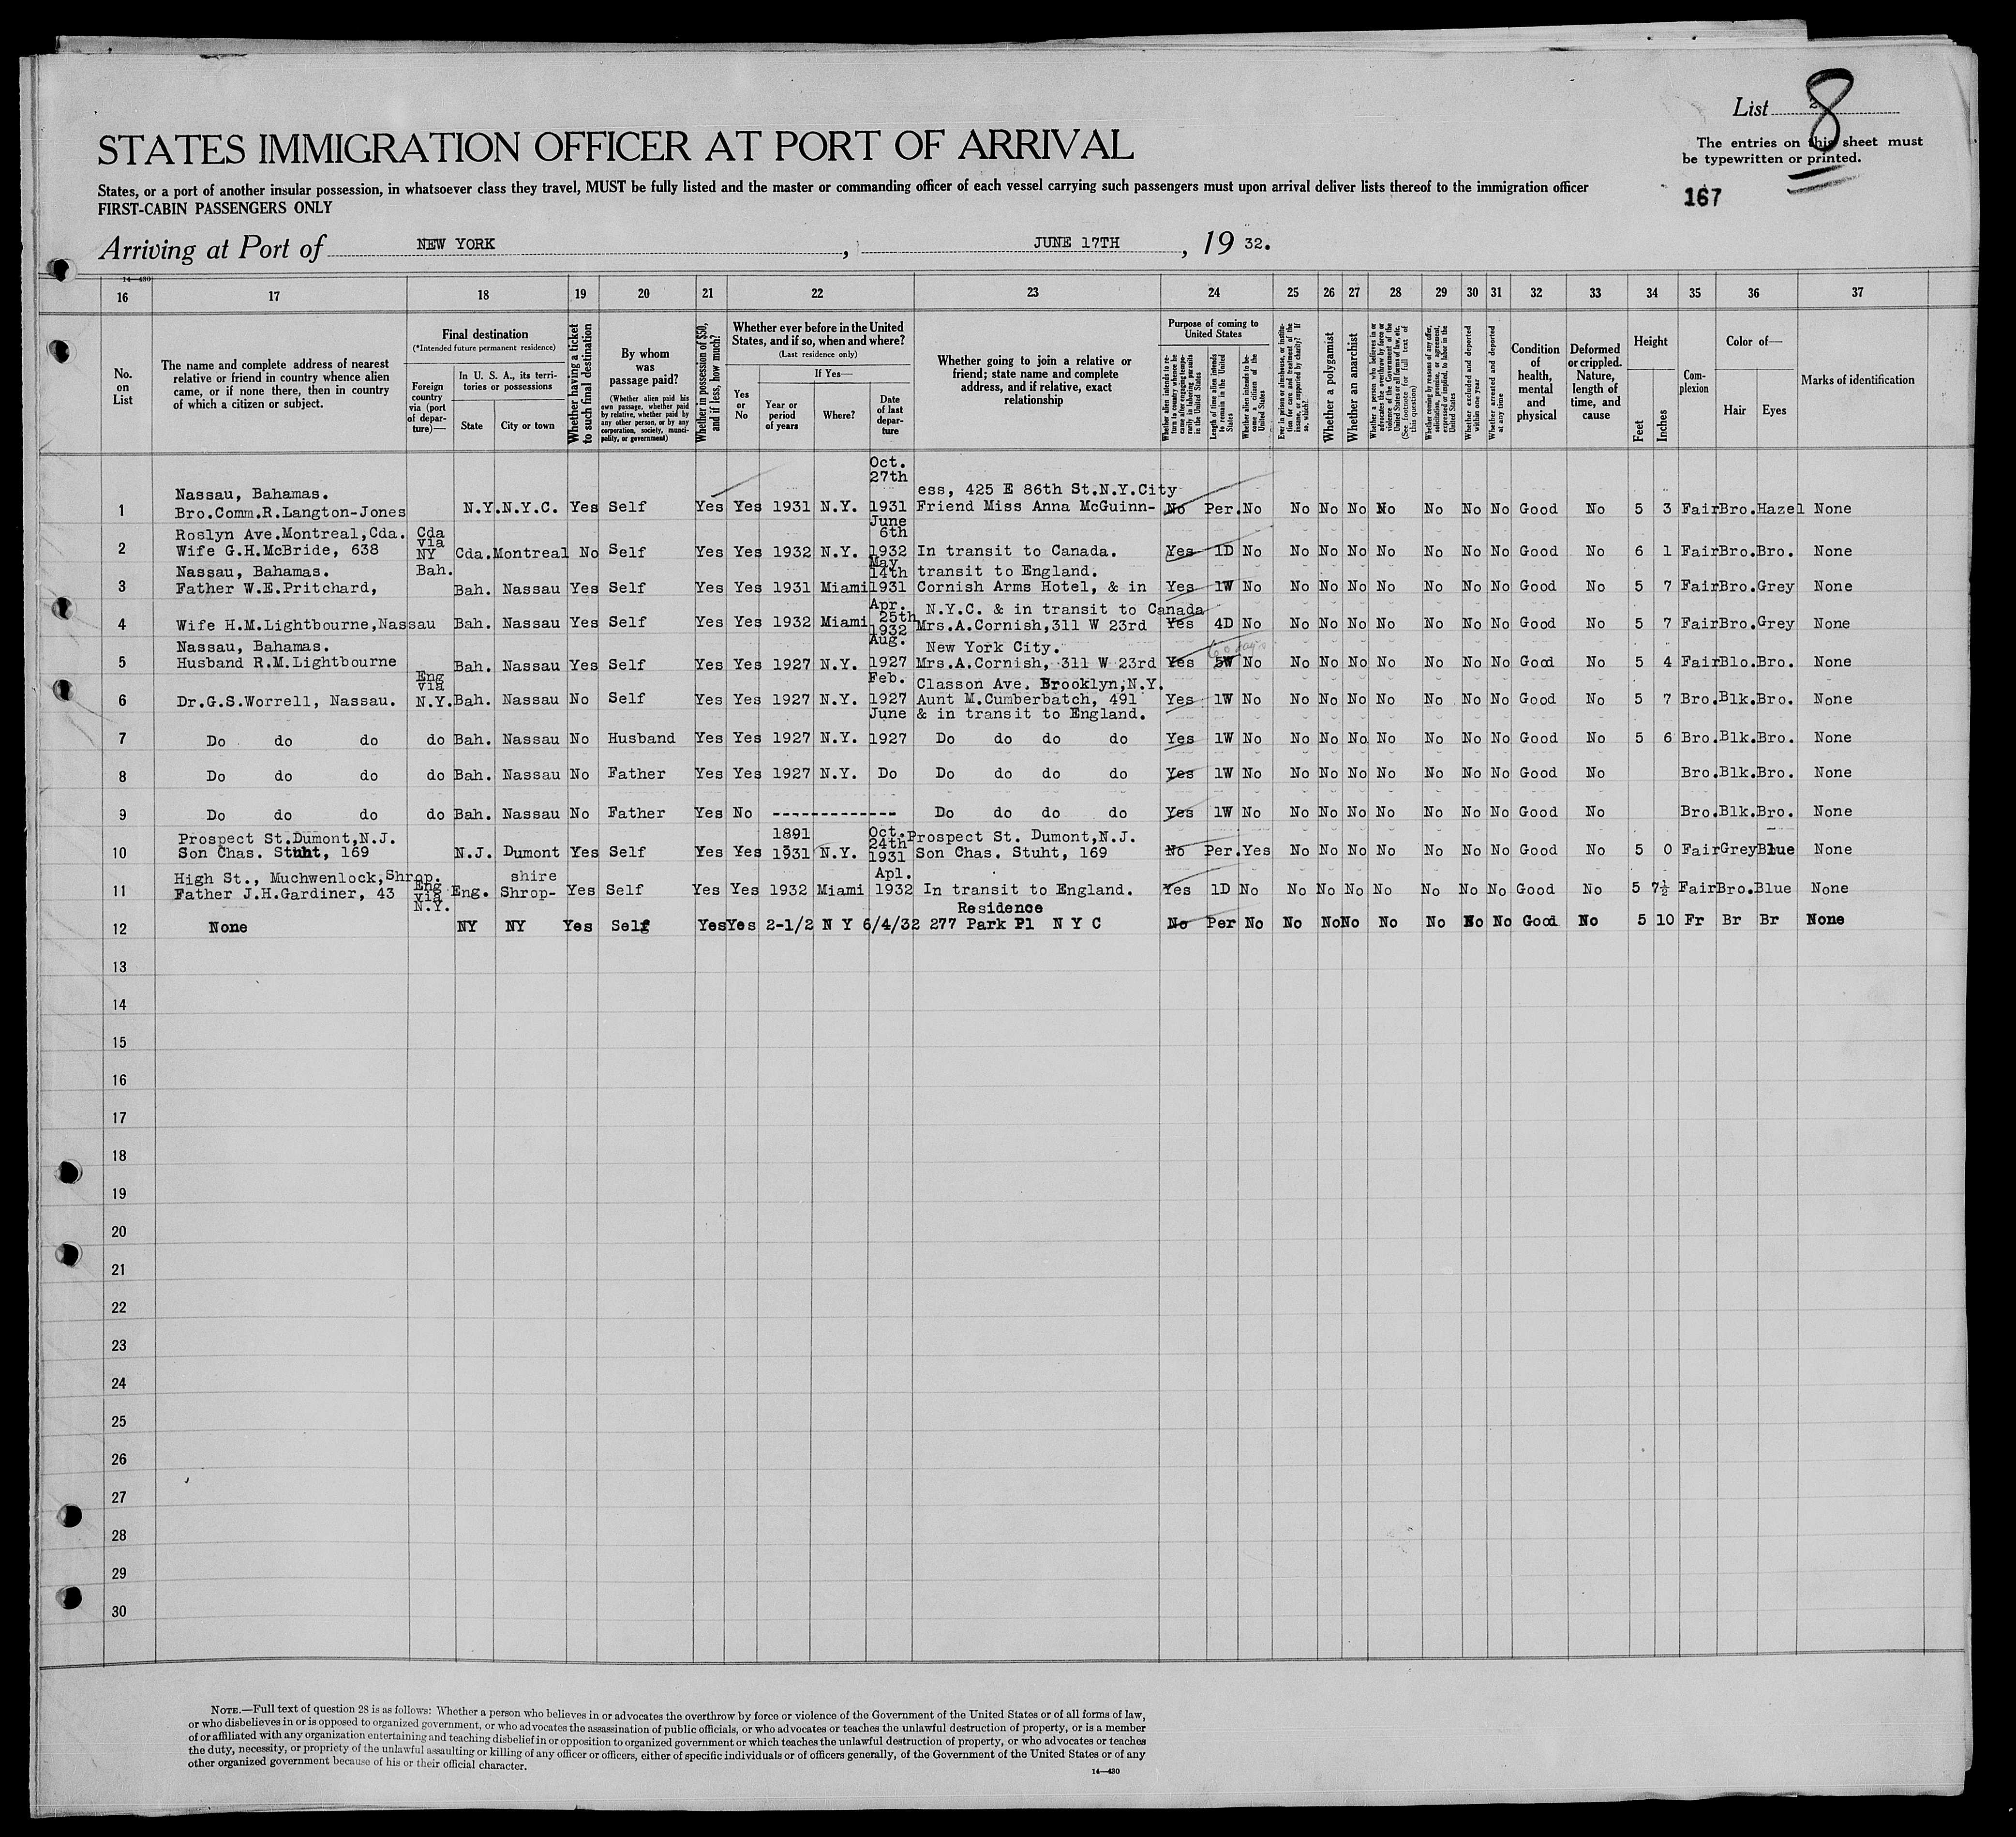 List 2
8
STATES IMMIGRATION OFFICER AT PORT OF ARRIVAL
The entries on this sheet must
be typewritten or printed.
States, or a port of another insular possession, in whatsoever class they travel, MUST be fully listed and the master or commanding officer of each vessel carrying such passengers must upon arrival deliver lists thereof to the immigration officer
FIRST-CABIN PASSENGERS ONLY
167
Arriving at Port of NEW YORK, JUNE 17TH, 1932.
14—430
16 17 18 19 20 21 22 23 24 25 26 27 28 29 30 31 32 33 34 35 36 37
No. on List
The name and complete address of nearest relative or friend in country whence alien came, or if none there, then in country of which a citizen or subject.
Final destination
(*Intended future permanent residence)
Foreign country via (port of departure)—
In U. S. A., its territories or possessions
State
City or town
Whether having a ticket to such final destination
By whom was passage paid?
(Whether alien paid his own passage, whether paid by relative, whether paid by any other person, or by any corporation, society, municipality, or government)
Whether in possession of $50, and if less, how much?
Whether ever before in the United States, and if so, when and where?
(Last residence only)
Yes or No
If Yes—
Year or period of years
Where?
Date of last departure
Whether going to join a relative or friend; state name and complete address, and if relative, exact relationship
Purpose of coming to United States
Whether alien intends to return to country whence he came after engaging temporarily in laboring pursuits in the United States
Length of time alien intends to remain in the United States
Whether alien intends to become a citizen of the United States
Ever in prison or almshouse, or institution for care and treatment of the insane, or supported by charity? If so, which?
Whether a polygamist
Whether an anarchist
Whether a person who believes in or advocates the overthrow by force or violence of the Government of the United States or all forms of law, etc. (See footnote for full text of this question)
Whether coming by reason of any offer, solicitation, promise, or agreement, expressed or implied, to labor in the United States
Whether excluded and deported within one year
Whether arrested and deported at any time
Condition of health, mental and physical
Deformed or crippled. Nature, length of time, and cause
Height
Feet
Inches
Complexion
Color of—
Hair
Eyes
Marks of identification
Oct.
27th
Nassau, Bahamas. ess, 425 E 86th St.N.Y.City
1 Bro.Comm.R.Langton-Jones N.Y. N.Y.C. Yes Self Yes Yes 1931 N.Y. 1931 Friend Miss Anna McGuinn- No Per. No No No No No No No No Good No 5 3 Fair Bro. Hazel None
Roslyn Ave.Montreal,Cda. Cda via June 6th
2 Wife G.H.McBride, 638 NY Cda. Montreal No Self Yes Yes 1932 N.Y. 1932 In transit to Canada. Yes 1D No No No No No No No No Good No 6 1 Fair Bro. Bro. None
Nassau, Bahamas. Bah. May 14th transit to England.
3 Father W.E.Pritchard, Bah. Nassau Yes Self Yes Yes 1931 Miami 1931 Cornish Arms Hotel, & in Yes 1W No No No No No No No No Good No 5 7 Fair Bro. Grey None
Apr. 25th N.Y.C. & in transit to Canada
4 Wife H.M.Lightbourne,Nassau Bah. Nassau Yes Self Yes Yes 1932 Miami 1932 Mrs.A.Cornish,311 W 23rd Yes 4D No No No No No No No No Good No 5 7 Fair Bro. Grey None
Nassau, Bahamas. Aug. New York City. 60 days
5 Husband R.M.Lightbourne Bah. Nassau Yes Self Yes Yes 1927 N.Y. 1927 Mrs.A.Cornish, 311 W 23rd Yes 5W No No No No No No No No Good No 5 4 Fair Blo. Bro. None
Eng via Feb. Classon Ave. Brooklyn,N.Y.
6 Dr.G.S.Worrell, Nassau. N.Y. Bah. Nassau No Self Yes Yes 1927 N.Y. 1927 Aunt M.Cumberbatch, 491 Yes 1W No No No No No No No No Good No 5 7 Bro. Blk. Bro. None
June & in transit to England.
7 Do do do do Bah. Nassau No Husband Yes Yes 1927 N.Y. 1927 Do do do do Yes 1W No No No No No No No No Good No 5 6 Bro. Blk. Bro. None
8 Do do do do Bah. Nassau No Father Yes Yes 1927 N.Y. Do Do do do do Yes 1W No No No No No No No No Good No Bro. Blk. Bro. None
9 Do do do do Bah. Nassau No Father Yes No ------------- Do do do do Yes 1W No No No No No No No No Good No Bro. Blk. Bro. None
Prospect St.Dumont,N.J. 1891 Oct. 24th Prospect St. Dumont,N.J.
10 Son Chas. Stuht, 169 N.J. Dumont Yes Self Yes Yes 1931 N.Y. 1931 Son Chas. Stuht, 169 No Per. Yes No No No No No No No Good No 5 0 Fair Grey Blue None
High St., Muchwenlock,Shrop. shire Apl.
11 Father J.H.Gardiner, 43 Eng via N.Y. Eng. Shrop- Yes Self Yes Yes 1932 Miami 1932 In transit to England. Yes 1D No No No No No No No No Good No 5 7½ Fair Bro. Blue None
Residence
12 None NY NY Yes Self Yes Yes 2-1/2 N Y 6/4/32 277 Park Pl N Y C No Per No No No No No No No No Good No 5 10 Fr Br Br None
13
14
15
16
17
18
19
20
21
22
23
24
25
26
27
28
29
30
NOTE.—Full text of question 28 is as follows: Whether a person who believes in or advocates the overthrow by force or violence of the Government of the United States or of all forms of law,
or who disbelieves in or is opposed to organized government, or who advocates the assassination of public officials, or who advocates or teaches the unlawful destruction of property, or is a member
of or affiliated with any organization entertaining and teaching disbelief in or opposition to organized government or which teaches the unlawful destruction of property, or who advocates or teaches
the duty, necessity, or propriety of the unlawful assaulting or killing of any officer or officers, either of specific individuals or of officers generally, of the Government of the United States or of any
other organized government because of his or their official character.
14—430